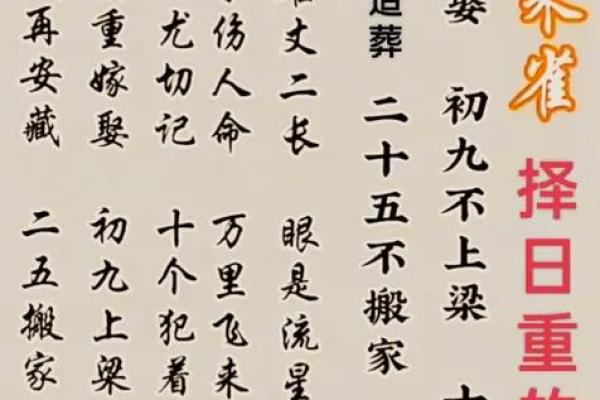 朱雀 择日重
娶 初九不上梁
造葬 二十五不搬家
丈二长 眼是流星
伤人命 万里飞来
尤切记 十个犯着
重嫁娶 初九上梁
再安藏 二五搬家